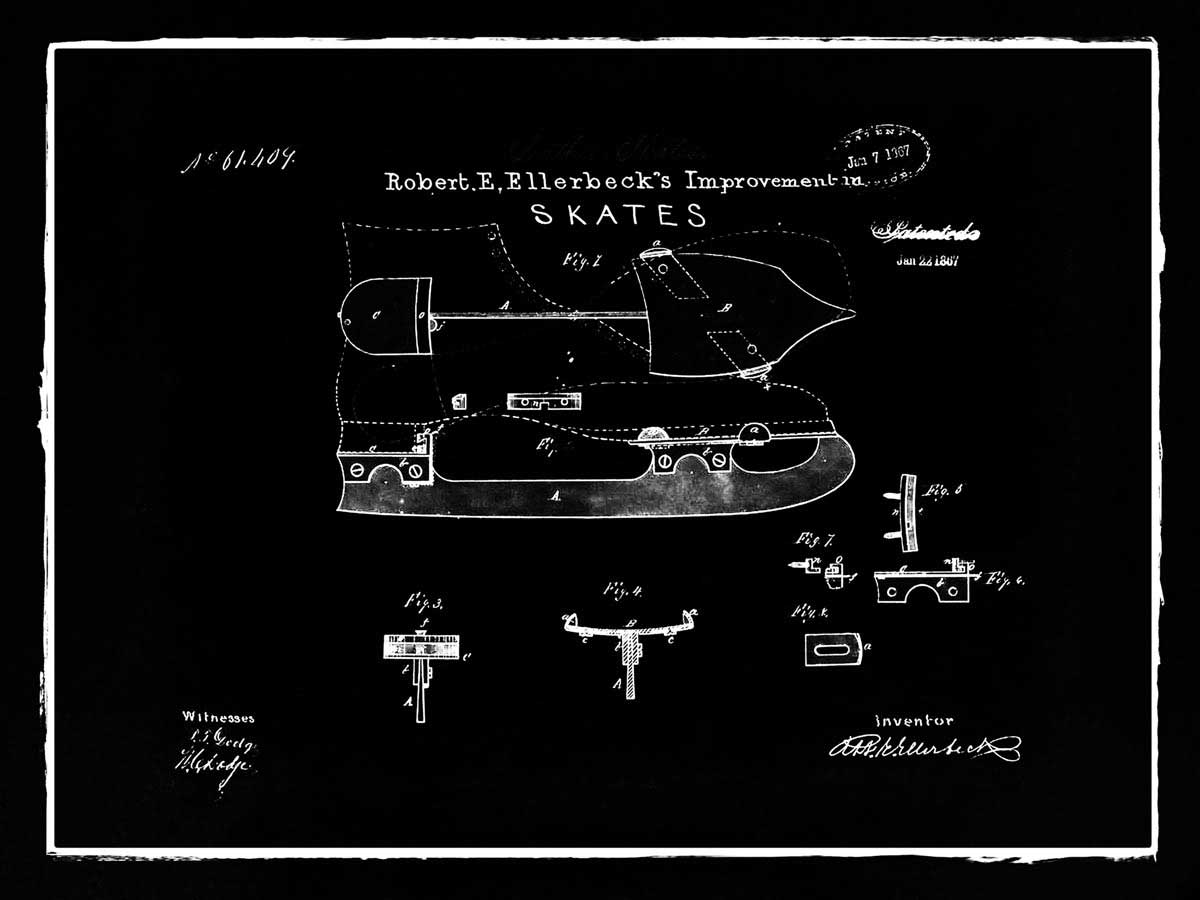 No 61.409.
PATENT
Jan 7 1867
Robert.E,Ellerbeck's Improvement in
SKATES
Patented
Jan 22 1867
Fig. 1
a
A
B
C
o
a
n
Fig.
B
a
C
b
b
A.
Fig. 5
n
Fig. 7.
n
O
n
C
b
Fig. 6.
Fig. 3.
f
C
A
Fig. 4.
a
B
a
c
c
A
a
Witnesses
Inventor
R.E. Ellerbeck